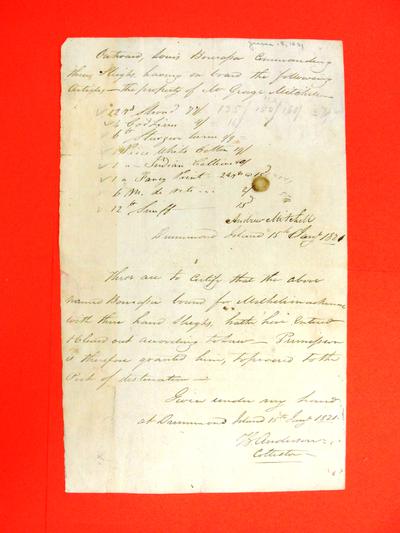 Outward, Louis Bourassa Commanding
three Sleighs having on board the following
Articles — the property of Mr George Mitchell —
22 yds Stroud 7/
4 Cod Lines
6 lb Sturgeon
1 Piece White Cotton
1 a — Indian Callico
1 a Fancy Print
6 M. de
12 lb Snuff
Andrew Mitchell
Drummond Island 15th Jany 1821
These are to Certify that the above
named Bourassa bound for Michilimackinac
with three hand Sleighs, hath here Entered
& Cleared out according to Law — Permission
is therefore granted him, to proceed to the
Port of destination —
Given under my hand
at Drummond Island 15th Jany 1821.
Anderson
Collector